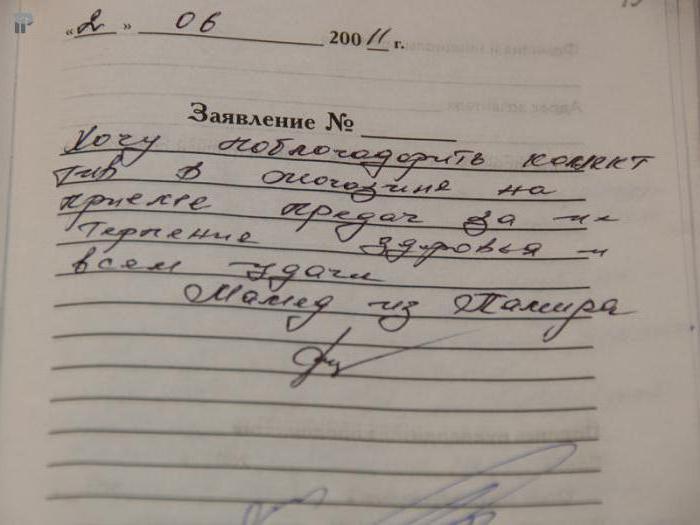 « 2 » 06 200 11 г.
Заявление №
Хочу поблогодорить коллект
тив в могозине на
приеме предач за их
терпение здоровья и
всем удачи
Мамед из Памира